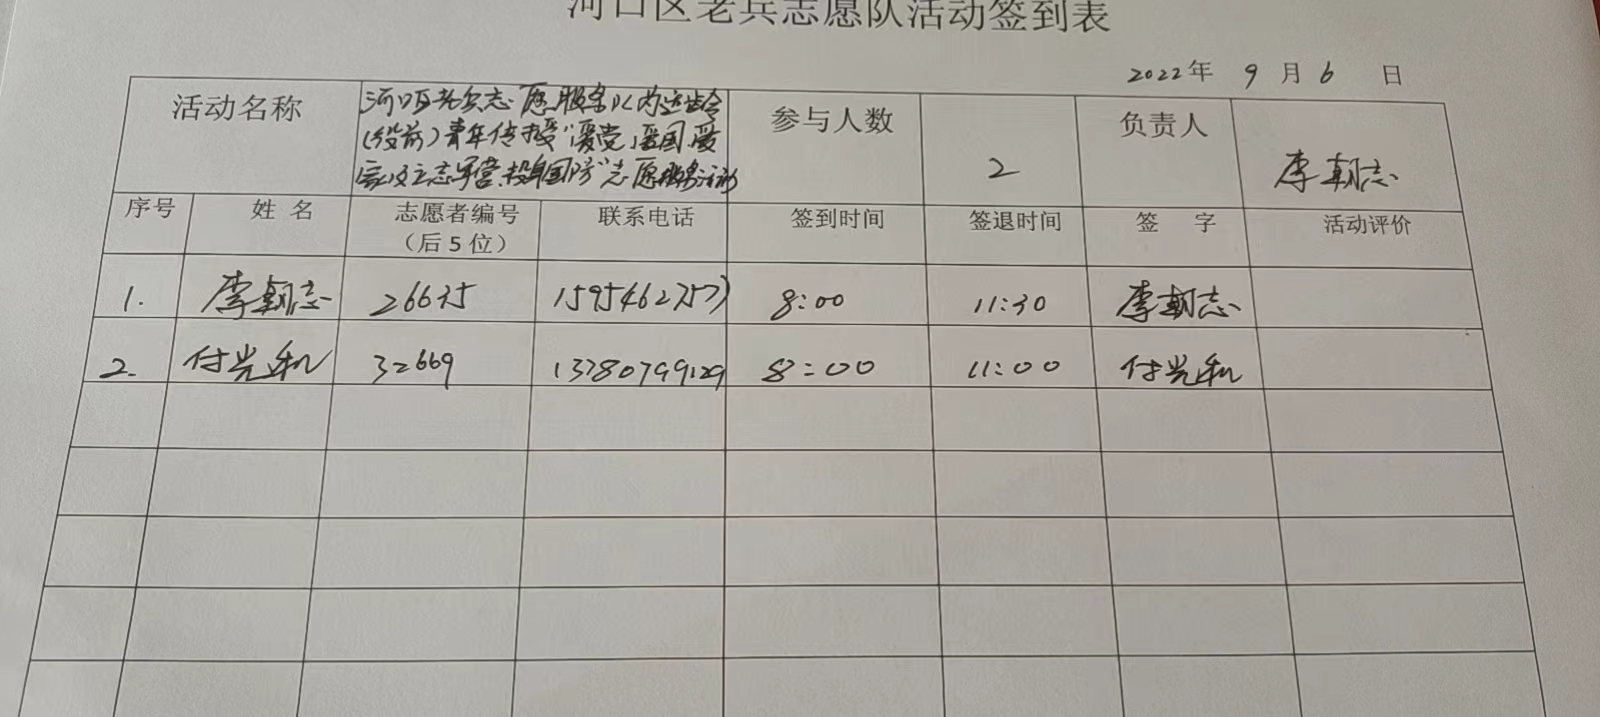 河口区老兵志愿队活动签到表
2022年 9 月 6 日
活动名称 河口区老兵志愿服务队为适龄 参与人数 2 负责人 李朝志
(役前)青年传授"爱党、爱国、爱
家及立志军营、投身国防"志愿服务活动
序号 姓 名 志愿者编号 联系电话 签到时间 签退时间 签 字 活动评价
(后5位)
1. 李朝志 26635 8:00 11:30 李朝志
2. 付光和 32669 13780799129 8:00 11:00 付光和